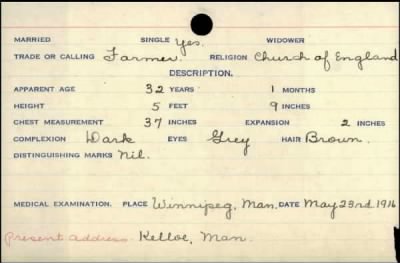 MARRIED SINGLE Yes. WIDOWER
TRADE OR CALLING Farmer. RELIGION Church of England
DESCRIPTION.
APPARENT AGE 32 YEARS 1 MONTHS
HEIGHT 5 FEET 9 INCHES
CHEST MEASUREMENT 37 INCHES EXPANSION 2 INCHES
COMPLEXION Dark EYES Grey HAIR Brown.
DISTINGUISHING MARKS Nil.
MEDICAL EXAMINATION. PLACE Winnipeg, Man. DATE May 23rd 1916
Present address. Kelloe, Man.